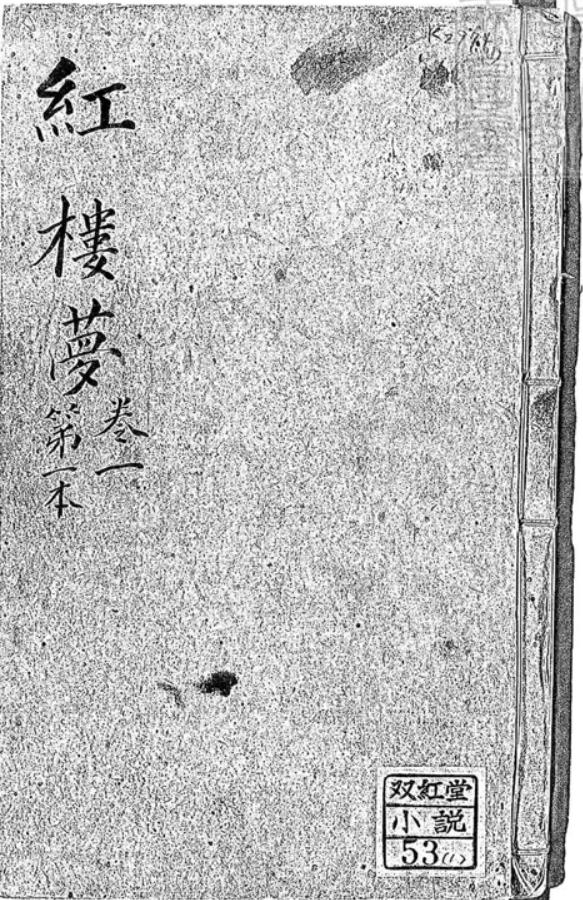 紅樓夢
卷一
第一本
双紅堂
小説
53(1)